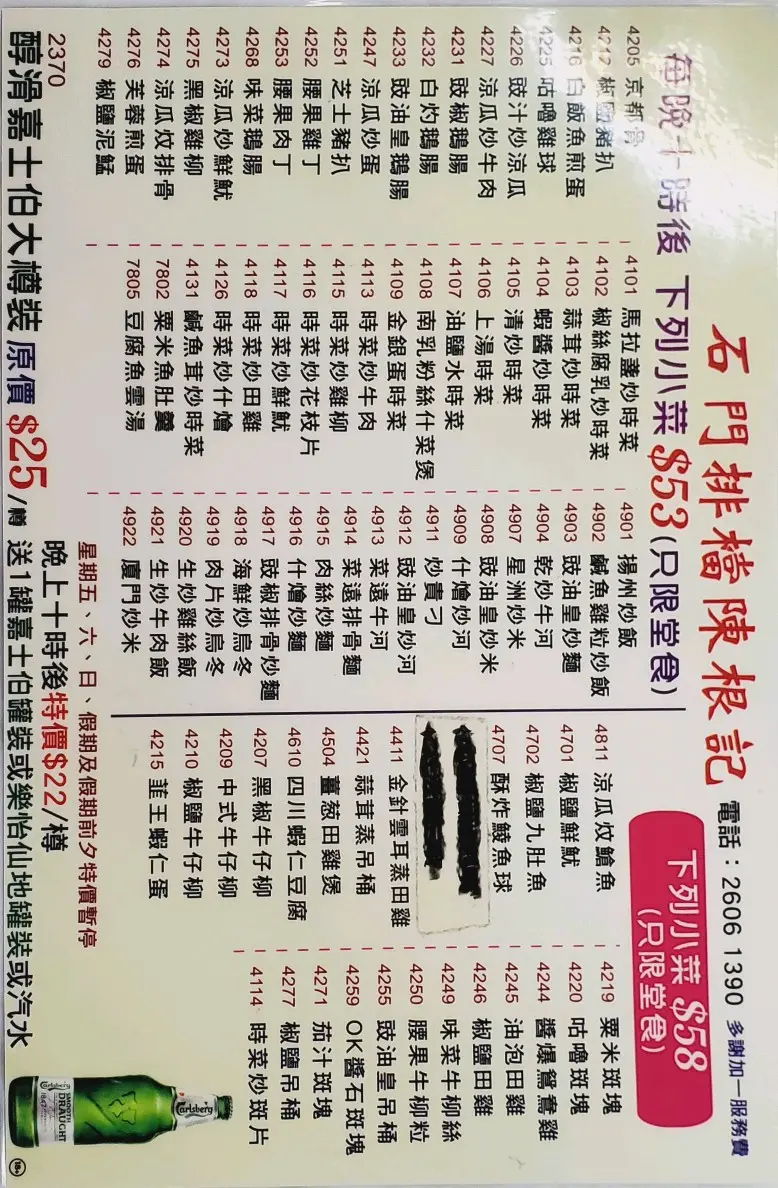 石門排檔陳根記
電話：2606 1390 多謝加一服務費
每晚十時後 下列小菜 $53 (只限堂食)
4205 京都骨
4212 椒鹽豬扒
4216 白飯魚煎蛋
4225 咕嚕雞球
4226 豉汁炒涼瓜
4227 涼瓜炒牛肉
4231 豉椒鵝腸
4232 白灼鵝腸
4233 豉油皇鵝腸
4247 涼瓜炒蛋
4251 芝士豬扒
4252 腰果雞丁
4253 腰果肉丁
4268 味菜鵝腸
4273 涼瓜炒鮮魷
4275 黑椒雞柳
4274 涼瓜炆排骨
4276 芙蓉煎蛋
4279 椒鹽泥鯭
4101 馬拉盞炒時菜
4102 椒絲腐乳炒時菜
4103 蒜茸炒時菜
4104 蝦醬炒時菜
4105 清炒時菜
4106 上湯時菜
4107 油鹽水時菜
4108 南乳粉絲什菜煲
4109 金銀蛋時菜
4113 時菜炒牛肉
4115 時菜炒雞柳
4116 時菜炒花枝片
4117 時菜炒鮮魷
4118 時菜炒田雞
4126 時菜炒什燴
4131 鹹魚茸炒時菜
7802 粟米魚肚羹
7805 豆腐魚雲湯
4901 揚州炒飯
4902 鹹魚雞粒炒飯
4903 豉油皇炒麵
4904 乾炒牛河
4907 星洲炒米
4908 豉油皇炒米
4909 什燴炒河
4911 炒貴刁
4912 豉油皇炒河
4913 菜遠牛河
4914 菜遠排骨麵
4915 肉絲炒麵
4916 什燴炒麵
4917 豉椒排骨炒麵
4918 海鮮炒烏冬
4919 肉片炒烏冬
4920 生炒雞絲飯
4921 生炒牛肉飯
4922 廈門炒米
下列小菜 $58
(只限堂食)
4811 涼瓜炆鎗魚
4701 椒鹽鮮魷
4702 椒鹽九肚魚
4707 酥炸鯪魚球
4411 金針雲耳蒸田雞
4421 蒜茸蒸吊桶
4504 薑葱田雞煲
4610 四川蝦仁豆腐
4207 黑椒牛仔柳
4209 中式牛仔柳
4210 椒鹽牛仔柳
4215 韮王蝦仁蛋
4219 粟米斑塊
4220 咕嚕斑塊
4244 醬爆鴛鴦雞
4245 油泡田雞
4246 椒鹽田雞
4249 味菜牛柳絲
4250 腰果牛柳粒
4255 豉油皇吊桶
4259 OK醬石斑塊
4271 茄汁斑塊
4277 椒鹽吊桶
4114 時菜炒斑片
星期五、六、日、假期及假期前夕特價暫停
2370
晚上十時後特價$22/樽
醇滑嘉士伯大樽裝 原價 $25/樽 送1罐嘉士伯罐裝或樂怡仙地罐裝或汽水
Carlsberg
Carlsberg
SMOOTH
DRAUGHT
1847
18+